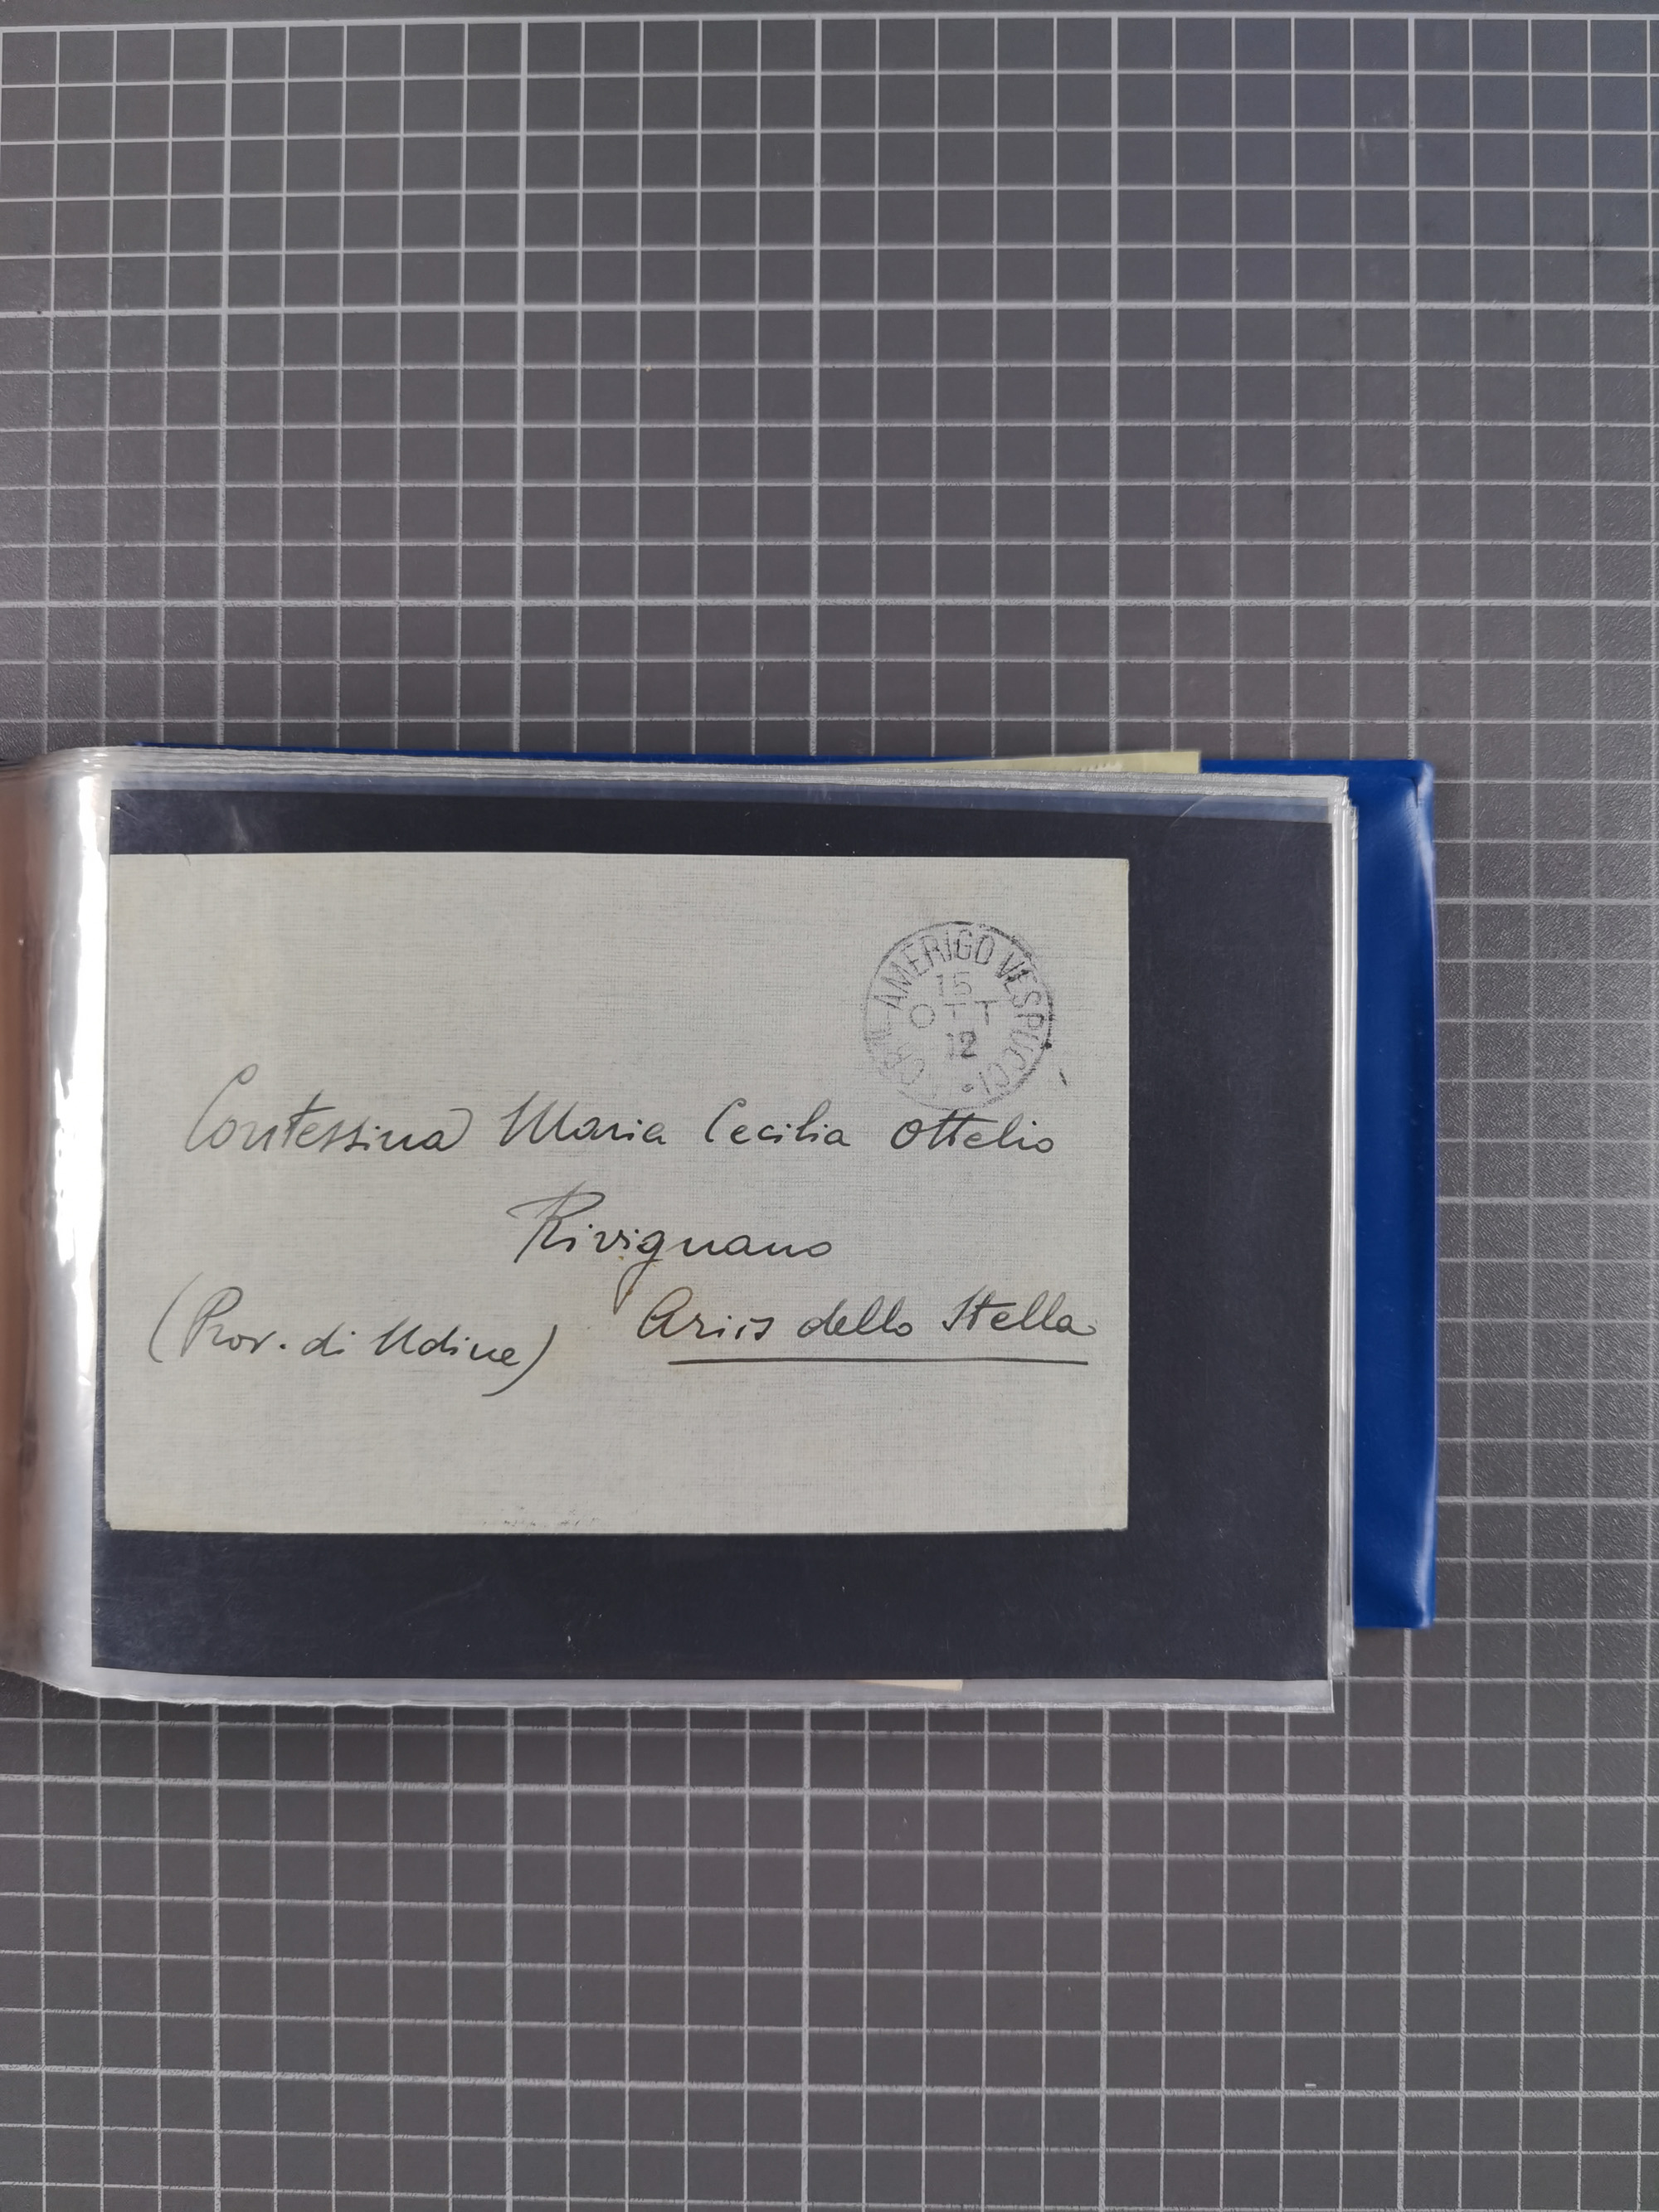 AMERIGO VESPUCCI
15
OTT
12
Contessina Maria Cecilia Ottelio
Rivignano
Ariis dello Stella
(Prov. di Udine)